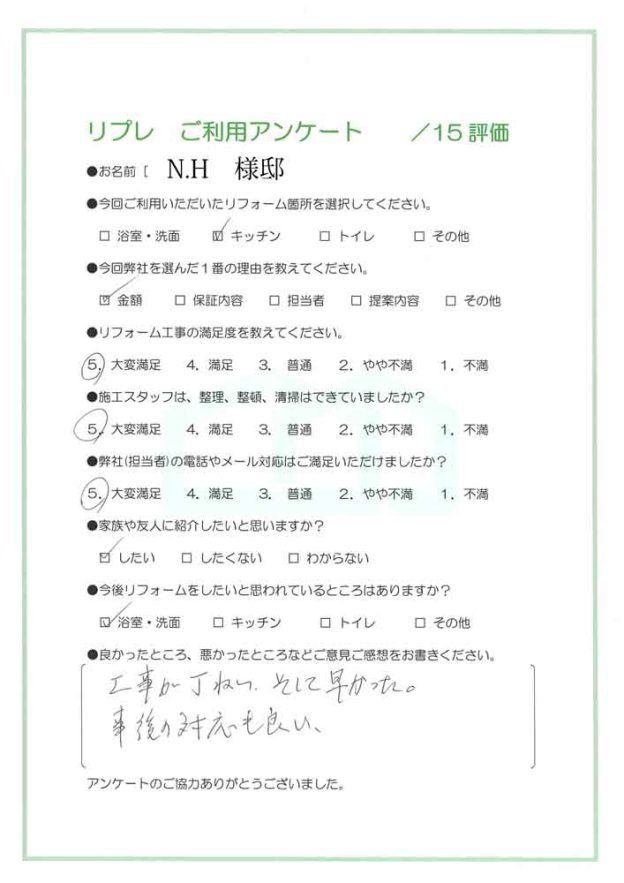 リプレ ご利用アンケート ／15評価
●お名前［ N.H 様邸
●今回ご利用いただいたリフォーム箇所を選択してください。
□ 浴室・洗面 ☑ キッチン □ トイレ □ その他
●今回弊社を選んだ１番の理由を教えてください。
☑ 金額 □ 保証内容 □ 担当者 □ 提案内容 □ その他
●リフォーム工事の満足度を教えてください。
5．大変満足 4．満足 3．普通 2．やや不満 1．不満
●施工スタッフは、整理、整頓、清掃はできていましたか？
5．大変満足 4．満足 3．普通 2．やや不満 1．不満
●弊社(担当者)の電話やメール対応はご満足いただけましたか？
5．大変満足 4．満足 3．普通 2．やや不満 1．不満
●家族や友人に紹介したいと思いますか？
☑ したい □ したくない □ わからない
●今後リフォームをしたいと思われているところはありますか？
☑ 浴室・洗面 □ キッチン □ トイレ □ その他
●良かったところ、悪かったところなどご意見ご感想をお書きください。
工事が丁ねい、そして早かった。
事後の対応も良い、
アンケートのご協力ありがとうございました。